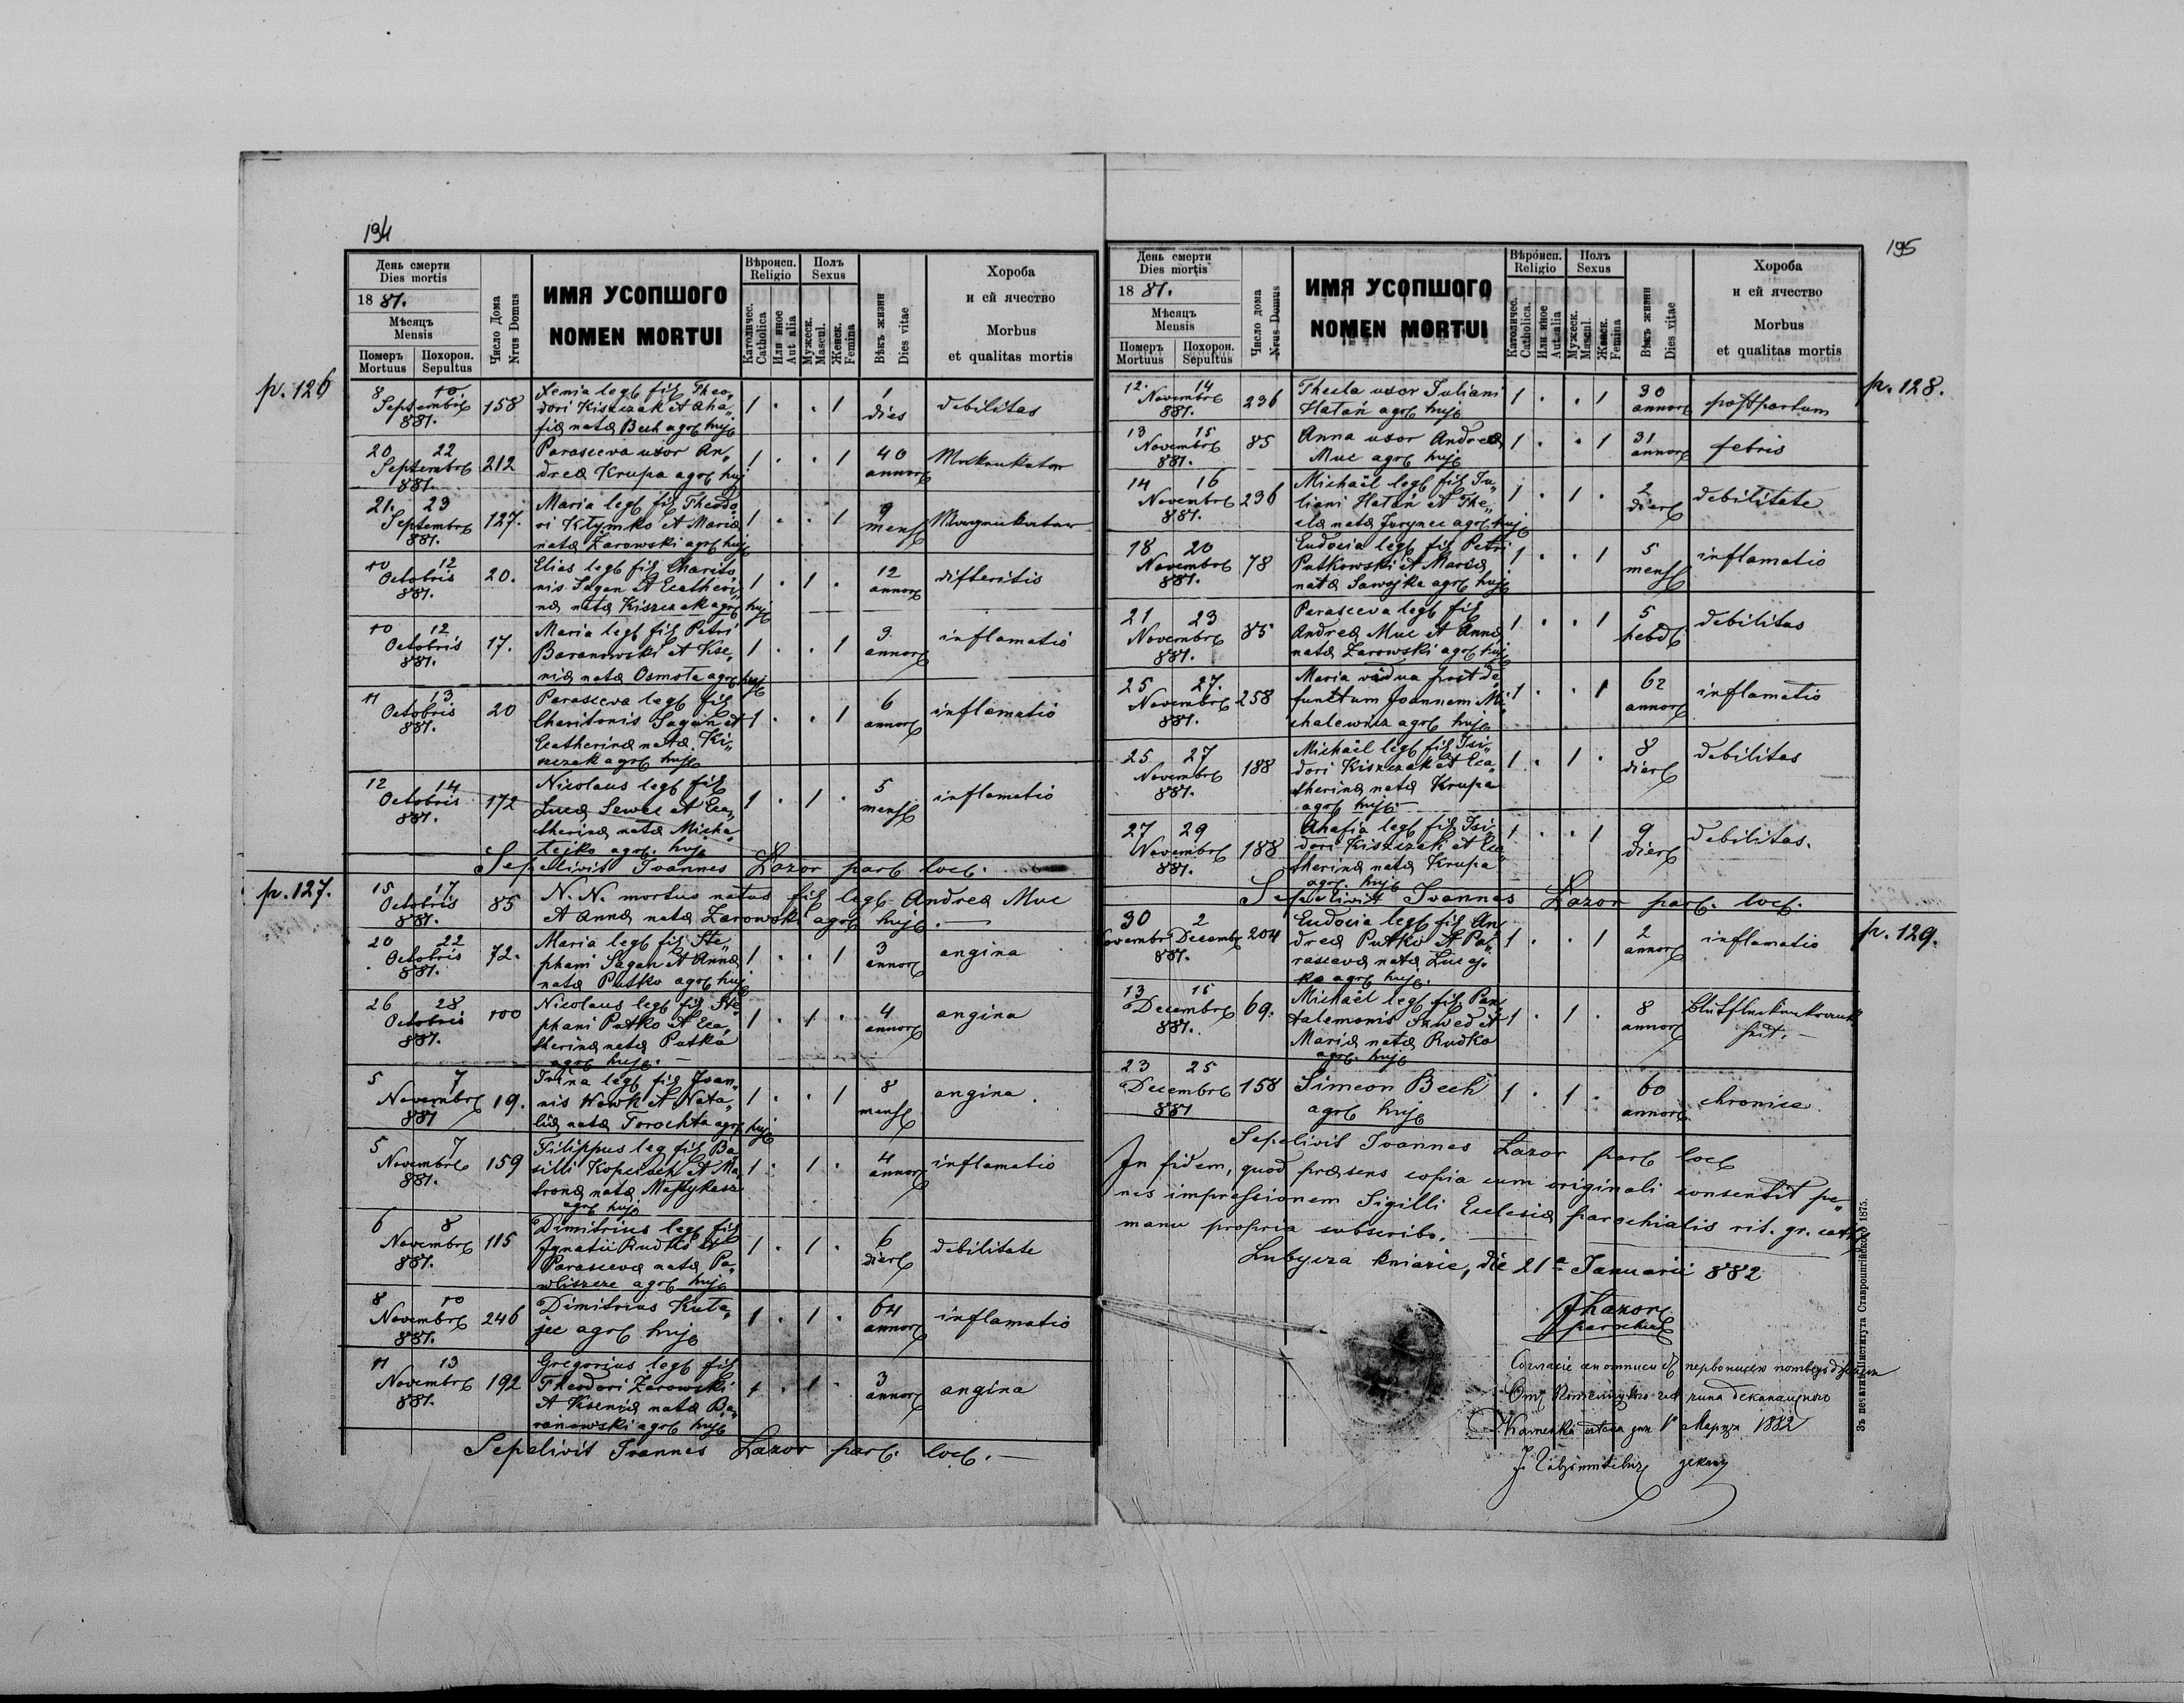 194
День смерти
Dies mortis
18 81.
Мѣсяцъ
Mensis
Померъ Похорон.
Mortuus Sepultus
Число Дома
Nrus Domus
ИМЯ УСОПШОГО
NOMEN MORTUI
Вѣроисп.
Religio
Католичес.
Catholica
Или иное
Aut alia
Полъ
Sexus
Мужеск.
Mascul.
Женск.
Femina
Вѣкъ жизни
Dies vitae
Хороба
и ей ячество
Morbus
et qualitas mortis
p. 126
8 10. Septembrs 881. 158
Xenia legt fil Theo„
dori Kiszczak et Aha„
fiæ natæ Bech agrc huj
1 . . 1 1 dies debilitas
20 22 Septembrs 881. 212
Parasceva uxor An„
dreæ Krupa agrc huj
1 . . 1 40 annor
21. 23 Septembrs 881. 127.
Maria legt fil Theodo„
ri Klymko et Mariæ
natæ Żarowski agrc huj
1 . . 1 9 mens
10 12 Octobris 881. 20.
Elias legt fil Charito„
nis Sagan et Ecatheri„
næ natæ Kiszczak agrc huj
1 . 1 . 12 annor difteritis
10 12 Octobris 881. 17.
Maria legt fil Petri
Baranowski et Kse„
niæ natæ Osmota agrc huj
1 . . 1 9. annor inflamatio
11 13 Octobris 881. 20
Parasceva legt fil
Charitonis Sagan et
Ecatherinæ natæ Ki„
szczak agrc huj
1 . . 1 6 annor inflamatio
12 14 Octobris 881. 172
Nicolaus legt fil
Lucæ Sewec et Eca„
therinæ natæ Micha„
tejko agrc. huj
1 . 1 . 5 mens inflamatio
Sepelivit Ioannes Lazor parc loc.
p. 127.
15 17 Octobris 881. 85
N. N. mortus natus fil legt Andreæ Muc
et Annæ natæ Żarowski agrc huj. —
20 22 Octobris 881. 72.
Maria legt fil Ste„
phani Sagan et Annæ
natæ Putko agrc huj
1 . . 1 3 annor angina
26 28 Octobris 881. 100
Nicolaus legt fil Ste„
phani Putko et Eca„
therinæ natæ Putko
agrc huj. —
1 . 1 . 4 annor angina
5 7 Novembrs 881 19.
Irina legt fil Joan„
nis Wowk et Nata„
liæ natæ Torochta agrc huj
1 . . 1 8 mens angina.
5 7 Novembrs 881. 159
Filippus leg fil Ba„
silii Kopciuch et Ma„
tronæ natæ Mastykasz
agrc huj
1 . 1 . 4 annor inflamatio
6 8 Novembrs 881. 115
Dimitrius legt fil
Ignatii Rudko et
Parascevæ natæ Pa„
wliszcze agrc huj
1 . 1 . 6 dier debilitate
8 10 Novembrs 881. 246
Dimitrius Kuta„
jec agrc huj
1 . 1 . 64 annor inflamatio
11 13 Novembrs 881. 192
Gregorius legt fil
Theodori Żarowski
et Kseniæ natæ Ba„
ranowski agrc huj
1 . 1 . 3 annor angina
Sepelivit Ioannes Lazor parc. loc. —
195
День смерти
Dies mortis
18 81.
Мѣсяцъ
Mensis
Померъ Похорон.
Mortuus Sepultus
Число дома
Nrus Domus
ИМЯ УСОПШОГО
NOMEN MORTUI
Вѣроисп.
Religio
Католичес.
Catholica.
Или иное
Aut alia
Полъ
Sexus
Мужеск.
Mascul.
Женск.
Femina
Вѣкъ жизни
Dies vitae
Хороба
и ей ячество
Morbus
et qualitas mortis
p. 128.
12. 14 Novembrs 881. 236
Thecla uxor Iuliani
Hatan agrc huj
1 . . 1 30 annor postpartum
13 15 Novembrs 881. 85
Anna uxor Andreæ
Muc agrc huj
1 . . 1 31 annor febris
14 16 Novembrs 881. 236
Michaël legt fil Iu„
liani Hatan et The„
clæ natæ Jarynec agrc huj
1 . 1 . 2 dier debilitate
18 20 Novembrs 881. 78
Eudocia legt fil Petri
Putkowski et Mariæ
natæ Sawojka agrc huj
1 . . 1 5 mens inflamatio
21 23 Novembrs 881. 85
Parasceva legt fil
Andreæ Muc et Annæ
natæ Żarowski agrc huj
1 . . 1 5 hebd debilitas
25 27. Novembrs 881. 258
Maria vidua post de„
functum Joannem Mi„
chalewicz agrc huj
1 . . 1 62 annor inflamatio
25 27 Novembrs 881. 188
Michaël legt fil Isi„
dori Kiszczak et Eca„
therinæ natæ Krupa
agrc huj. —
1 . 1 . 8 dier debilitas
27 29 Novembrs 881. 188
Ahafia legt fil Isi„
dori Kiszczak et Eca„
therinæ natæ Krupa
agrc. huj
1 . . 1 9 dier debilitas.
Sepelivit Ioannes Lazor parc. loc.
p. 129.
30 2 Novembr Decembr 881. 204
Eudocia legt fil An„
dreæ Putko et Pa„
rascevæ natæ Lucaj„
ko agrc huj.
1 . . 1 2 annor inflamatio
13 15 Decembrs 881. 69.
Michaël legt fil Pan„
talemonis Szwed et
Mariæ natæ Rudko
agrc. huj
1 . 1 . 8 annor
23 25 Decembrs 881 158
Simeon Bech
agrc huj
1 . 1 . 60 annor chronice
Sepelivit Ioannes Lazor parc loc
In fidem, quod præsens copia cum originali consentit pe„
nes impressionem Sigilli Ecclesiæ parochialis rit. gr. cath
manu propria subscribo. —
Lubycza kniazie, die 21a Ianuarii 882
JLazor
parochus
1882
Въ печатни Института Ставропигійского 1875.